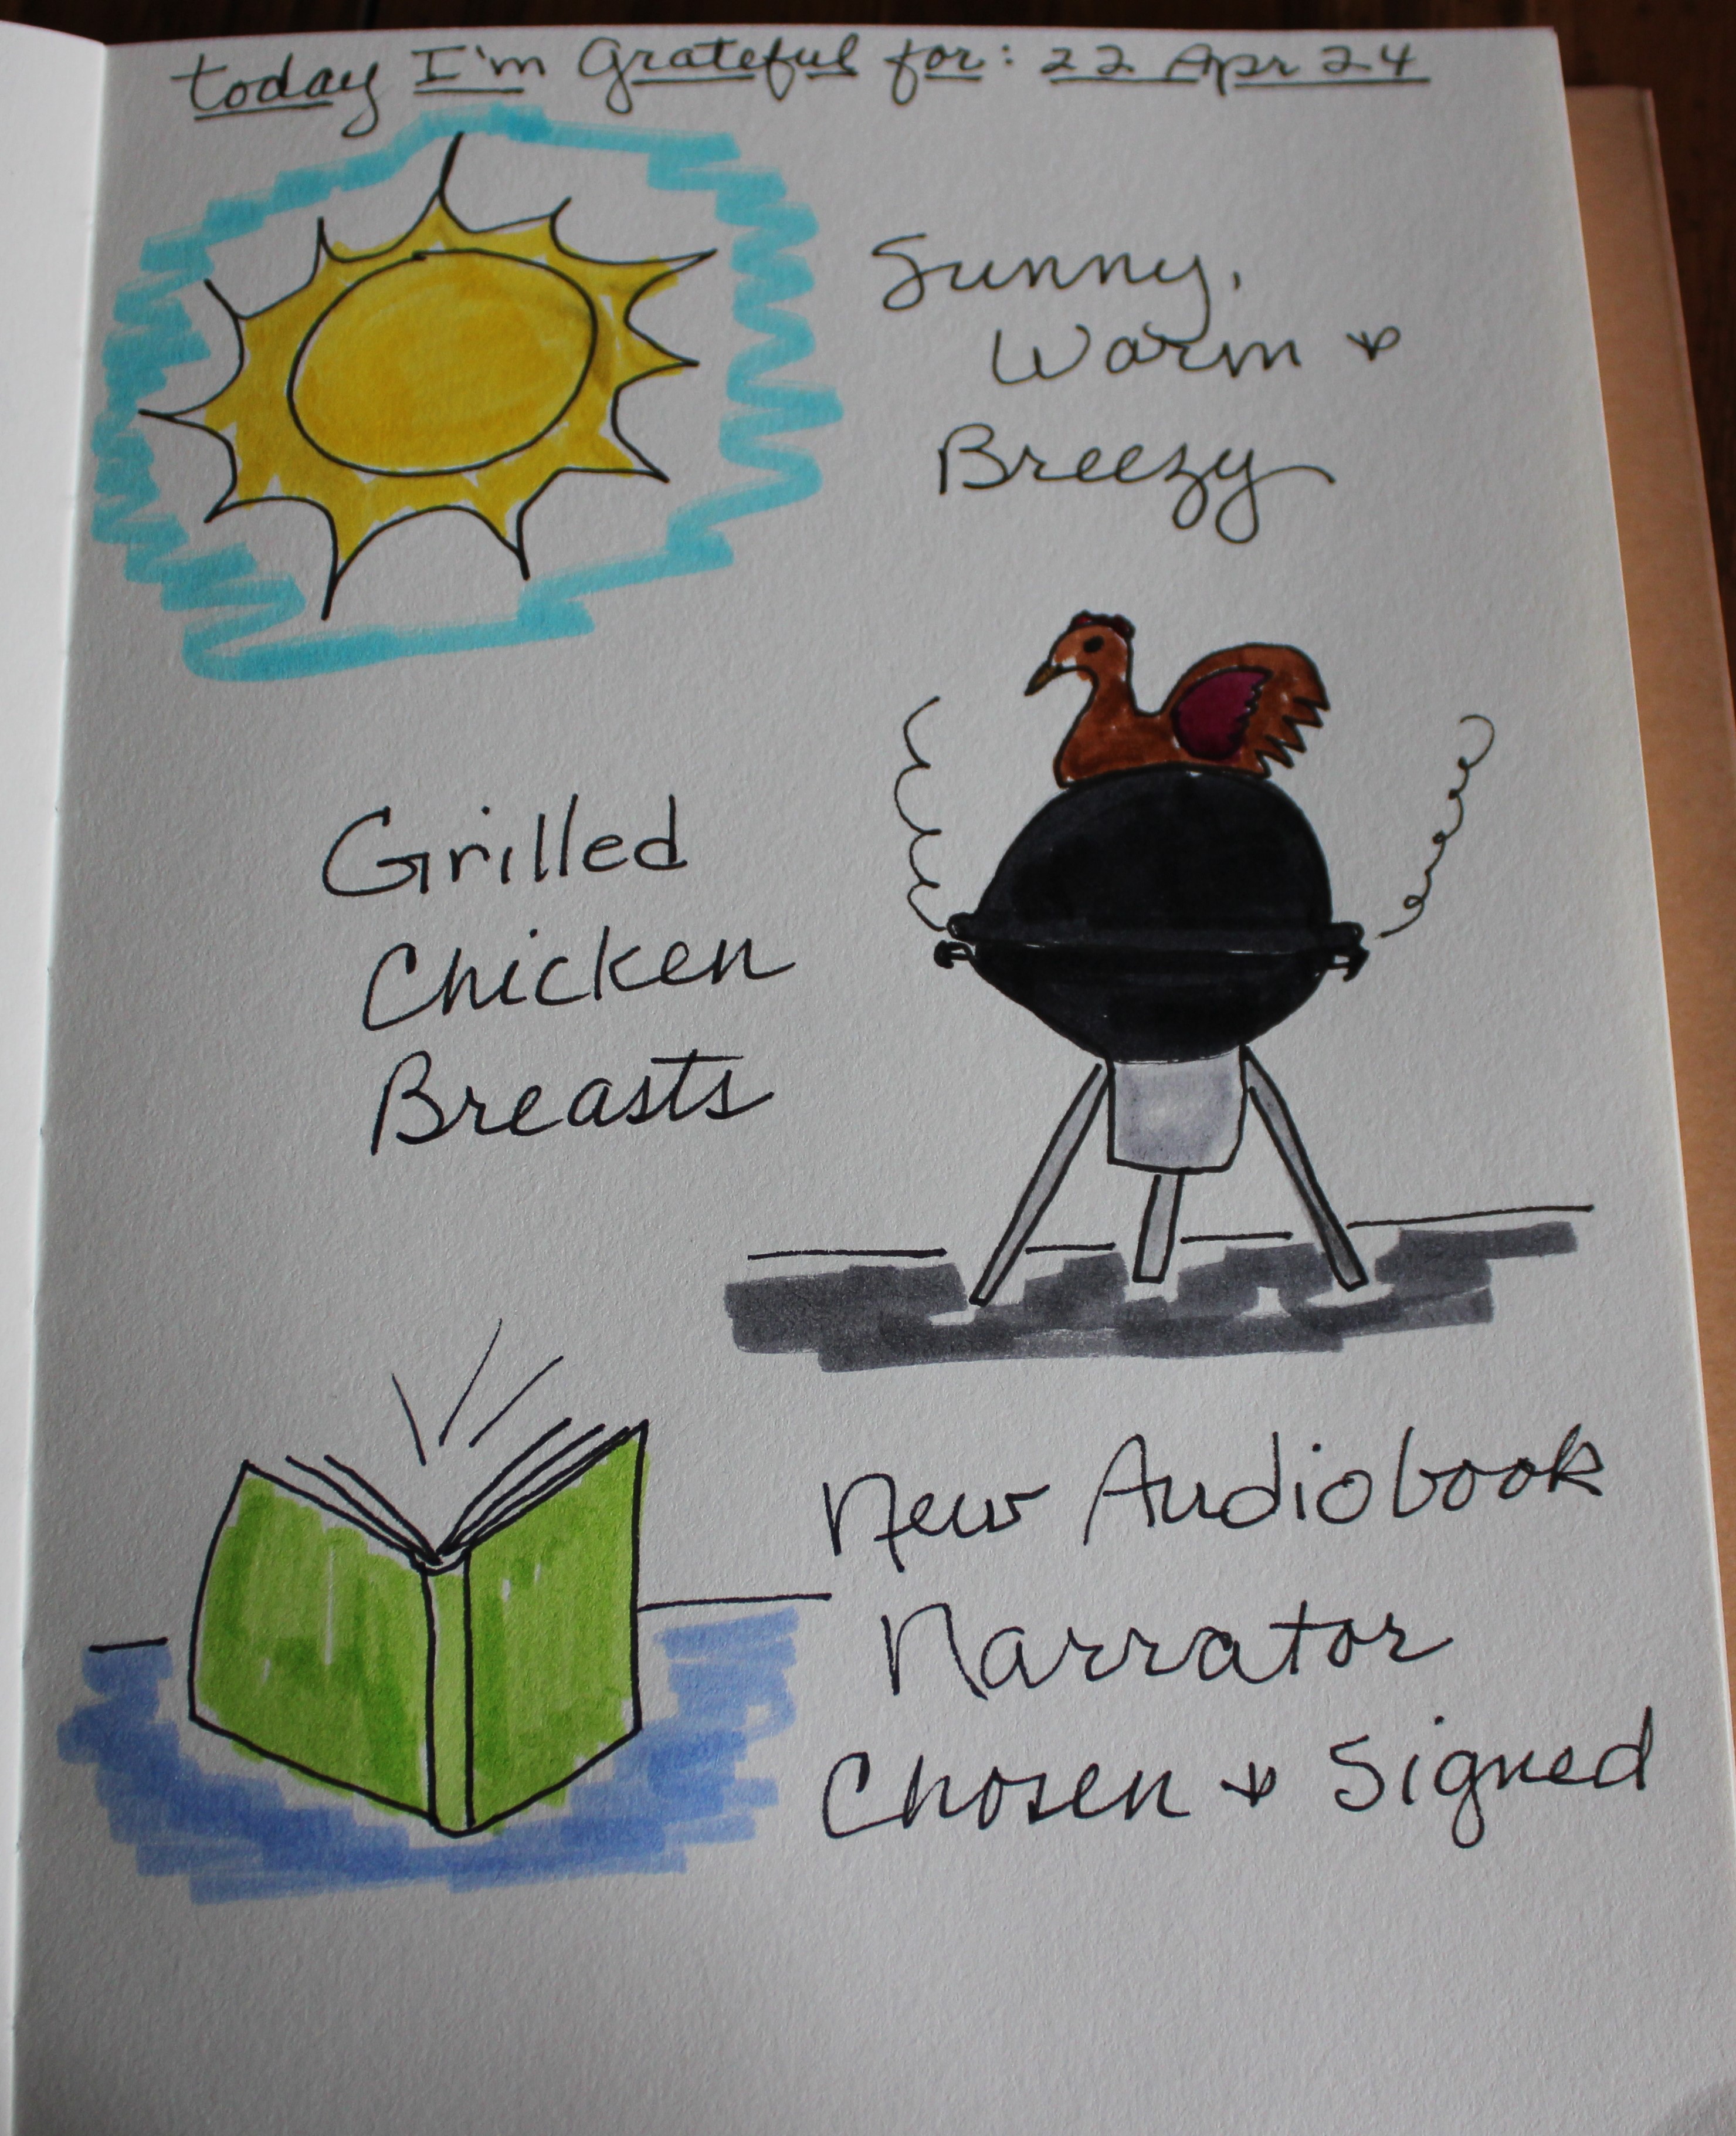 today I'm Grateful for: 22 Apr 24
Sunny,
Warm &
Breezy
Grilled
Chicken
Breasts
New Audiobook
Narrator
Chosen & Signed